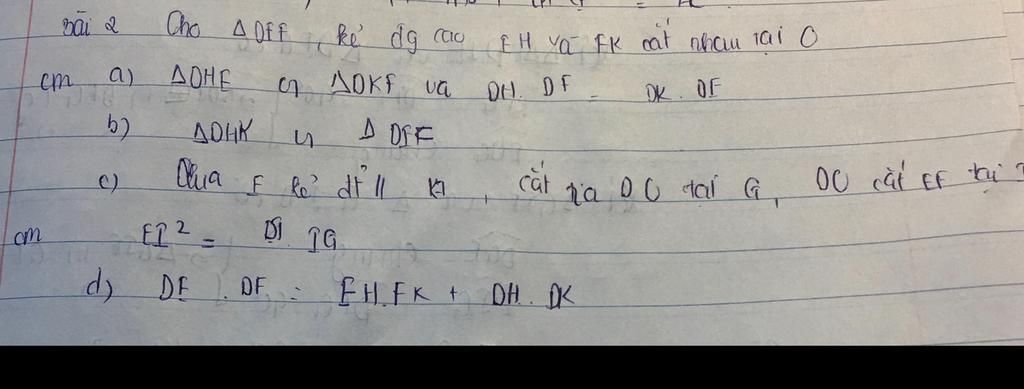 bài 2 Cho △DEF, kẻ đg cao EH và FK cắt nhau tại O
cm a) △DHE ∽ △DKF và DH. DF = DK. DE
b) △DHK ∽ △ DEF
c) Qua E kẻ đt // KH, cắt tia DO tại G, DO cắt EF tại I
cm EI² = DI. IG
d) DE. DF = EH. FK + DH. DK